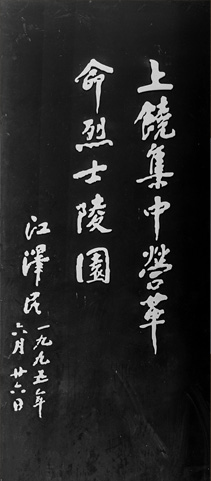 上饒集中營革
命烈士陵園
江澤民
一九九五年
六月廿六日